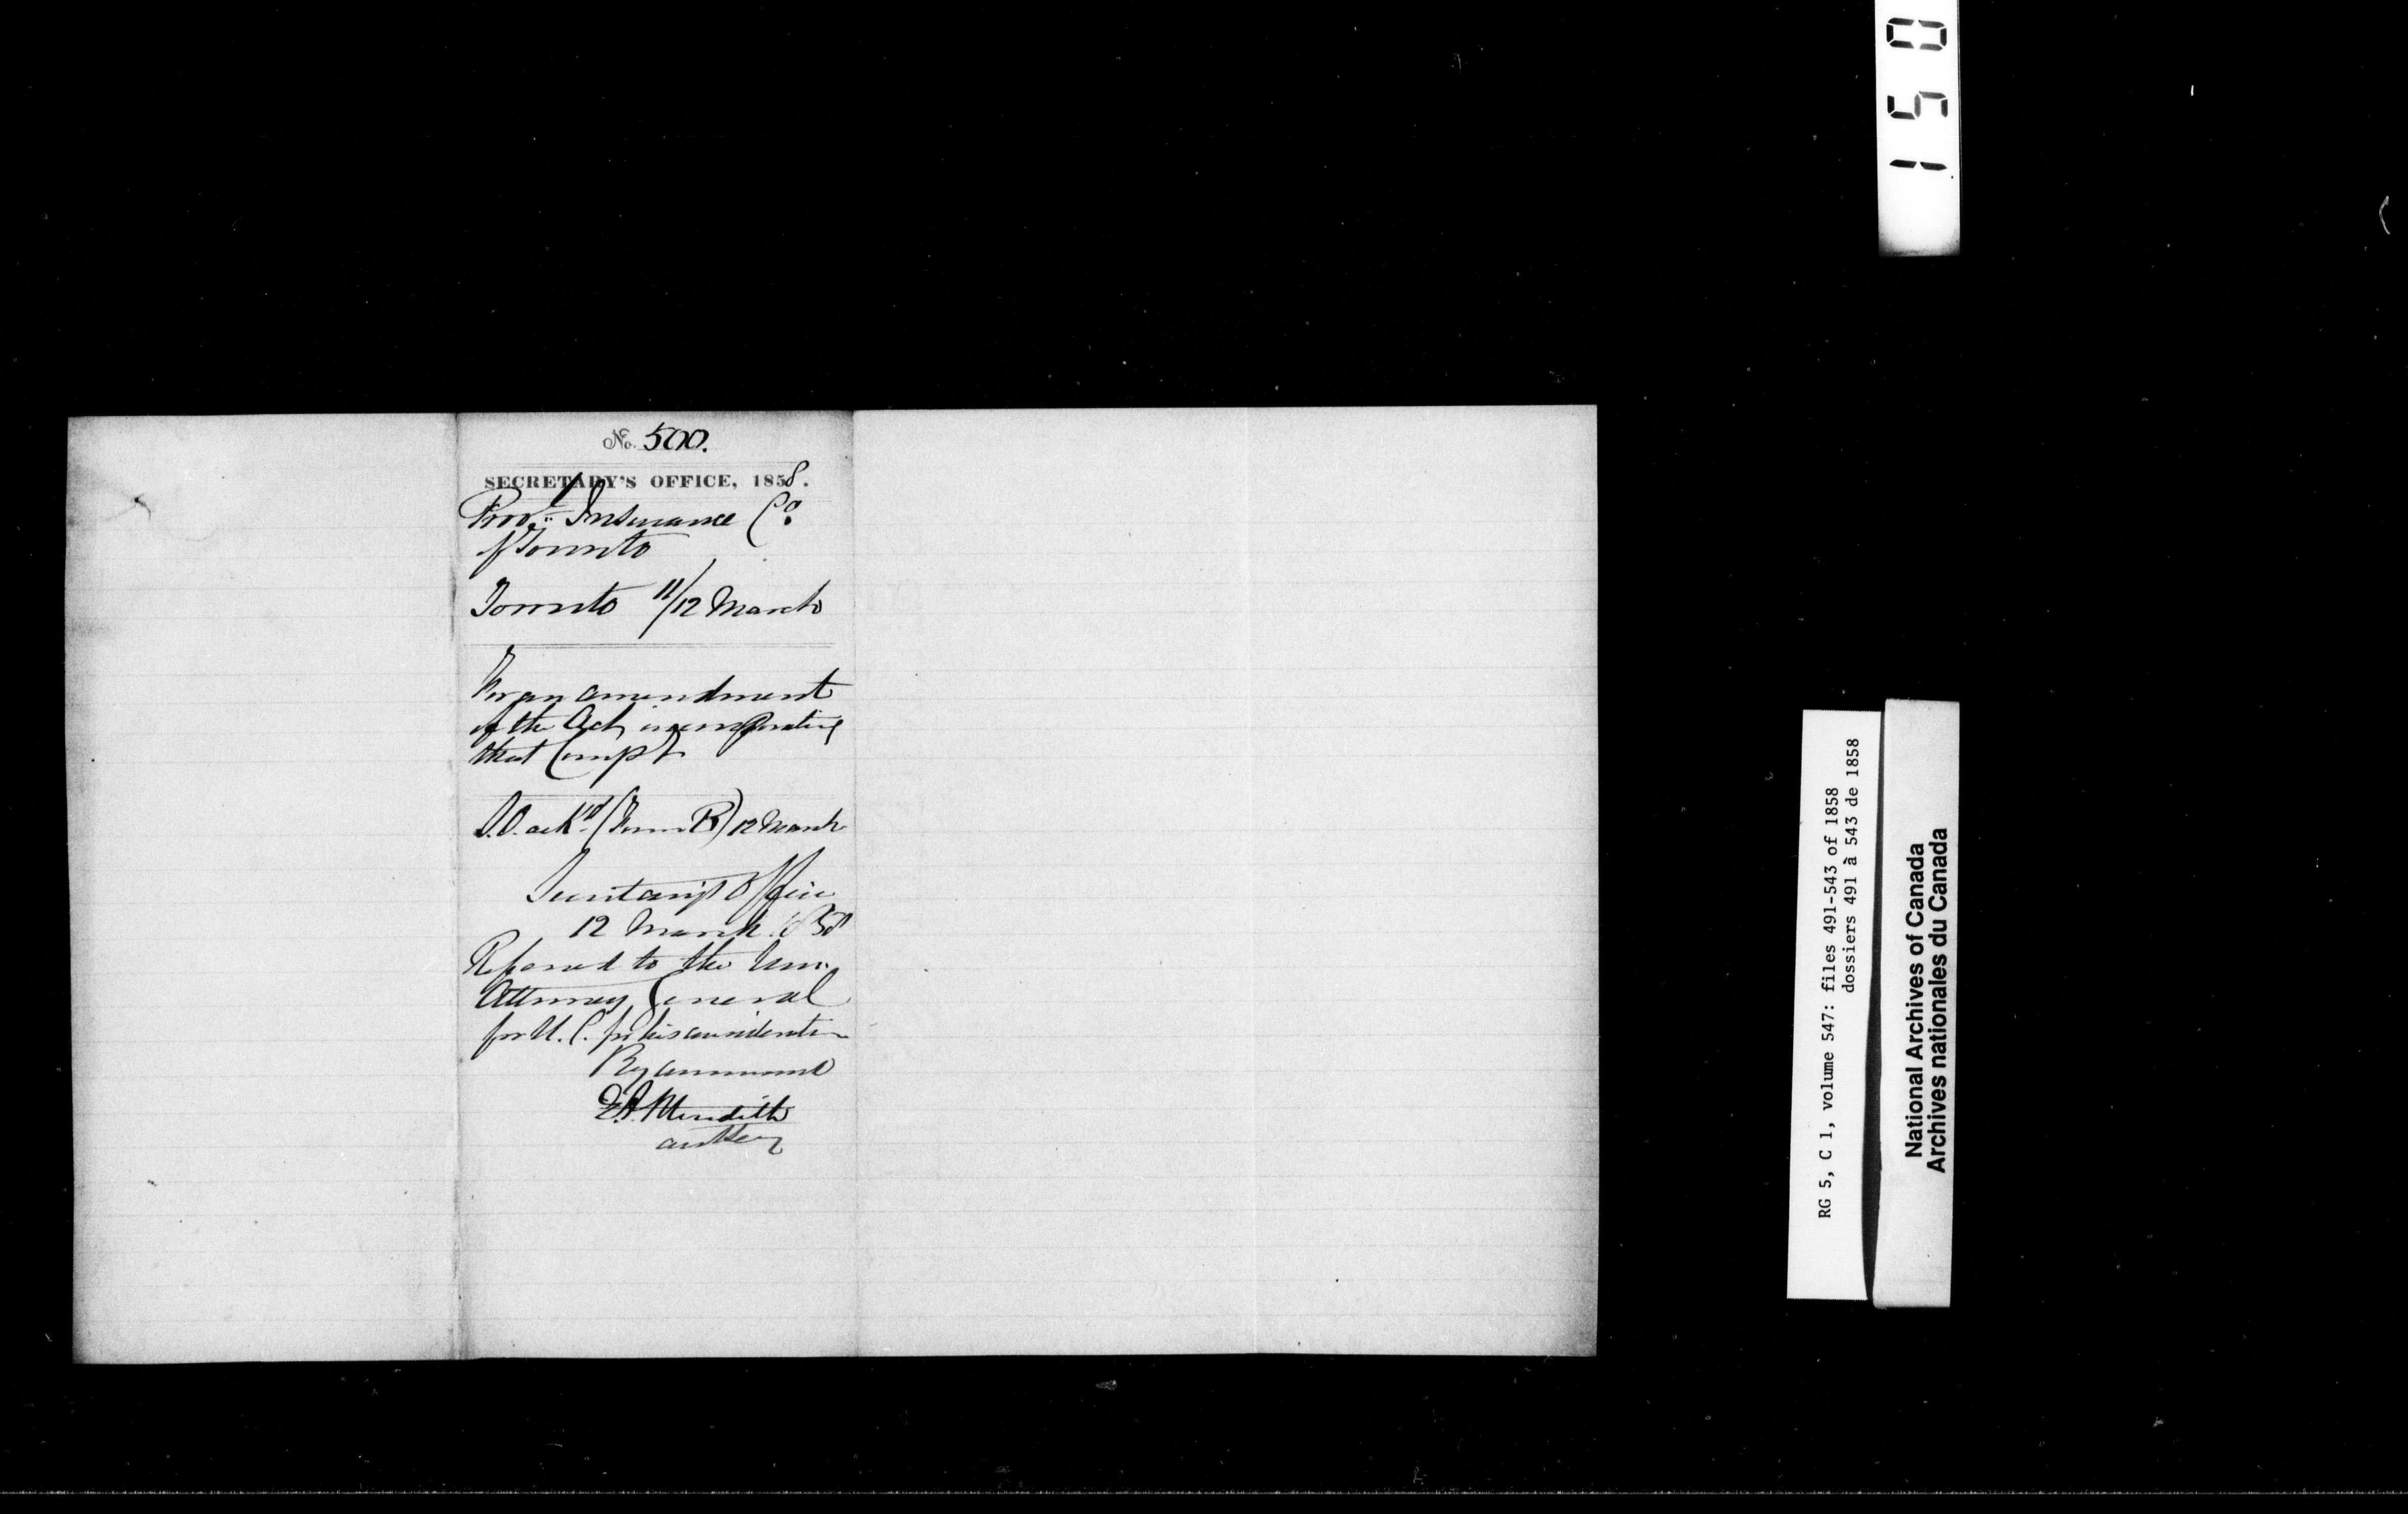 No. 500.
SECRETARY'S OFFICE, 1858.
Prov.l Insurance Co
of Toronto
Toronto 11/12 March
For an amendment
of the Act incorporating
that Compy
ackd (Form B) 12 March
Secretary's Office
12 March 1858
Referred to the Hon.
Attorney General
for U. C. for his consideration
By command
E. A. Meredith
Asst Secy
150
RG 5, C 1, volume 547: files 491-543 of 1858
dossiers 491 à 543 de 1858
National Archives of Canada
Archives nationales du Canada